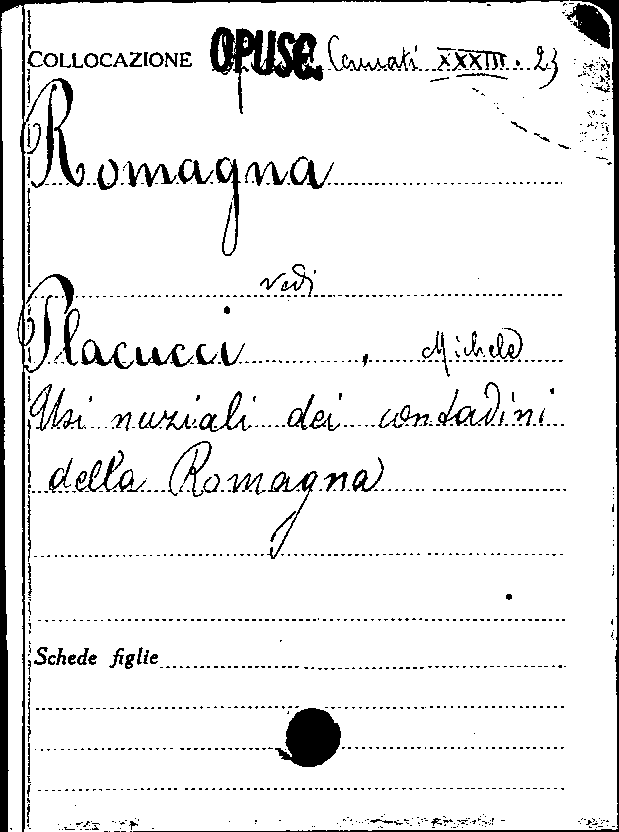 COLLOCAZIONE OPUSC. Cennati XXXIII. 23
Romagna
vedi
Placucci, Michele
Usi nuziali dei contadini
della Romagna
Schede figlie